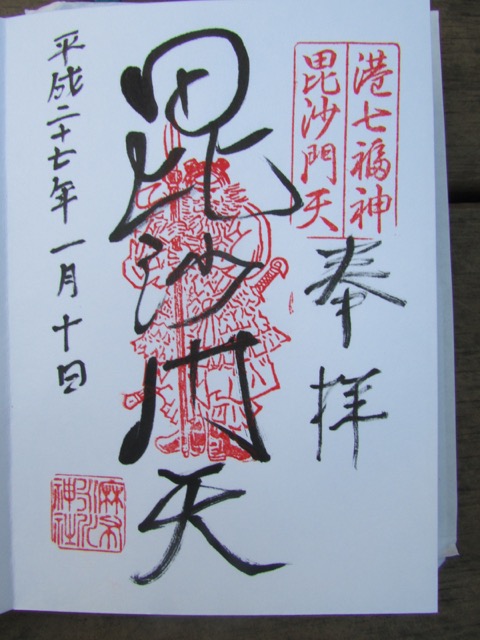 港七福神
毘沙門天
奉拝
毘沙門天
平成二十七年一月十日
麻布
氷川
神社